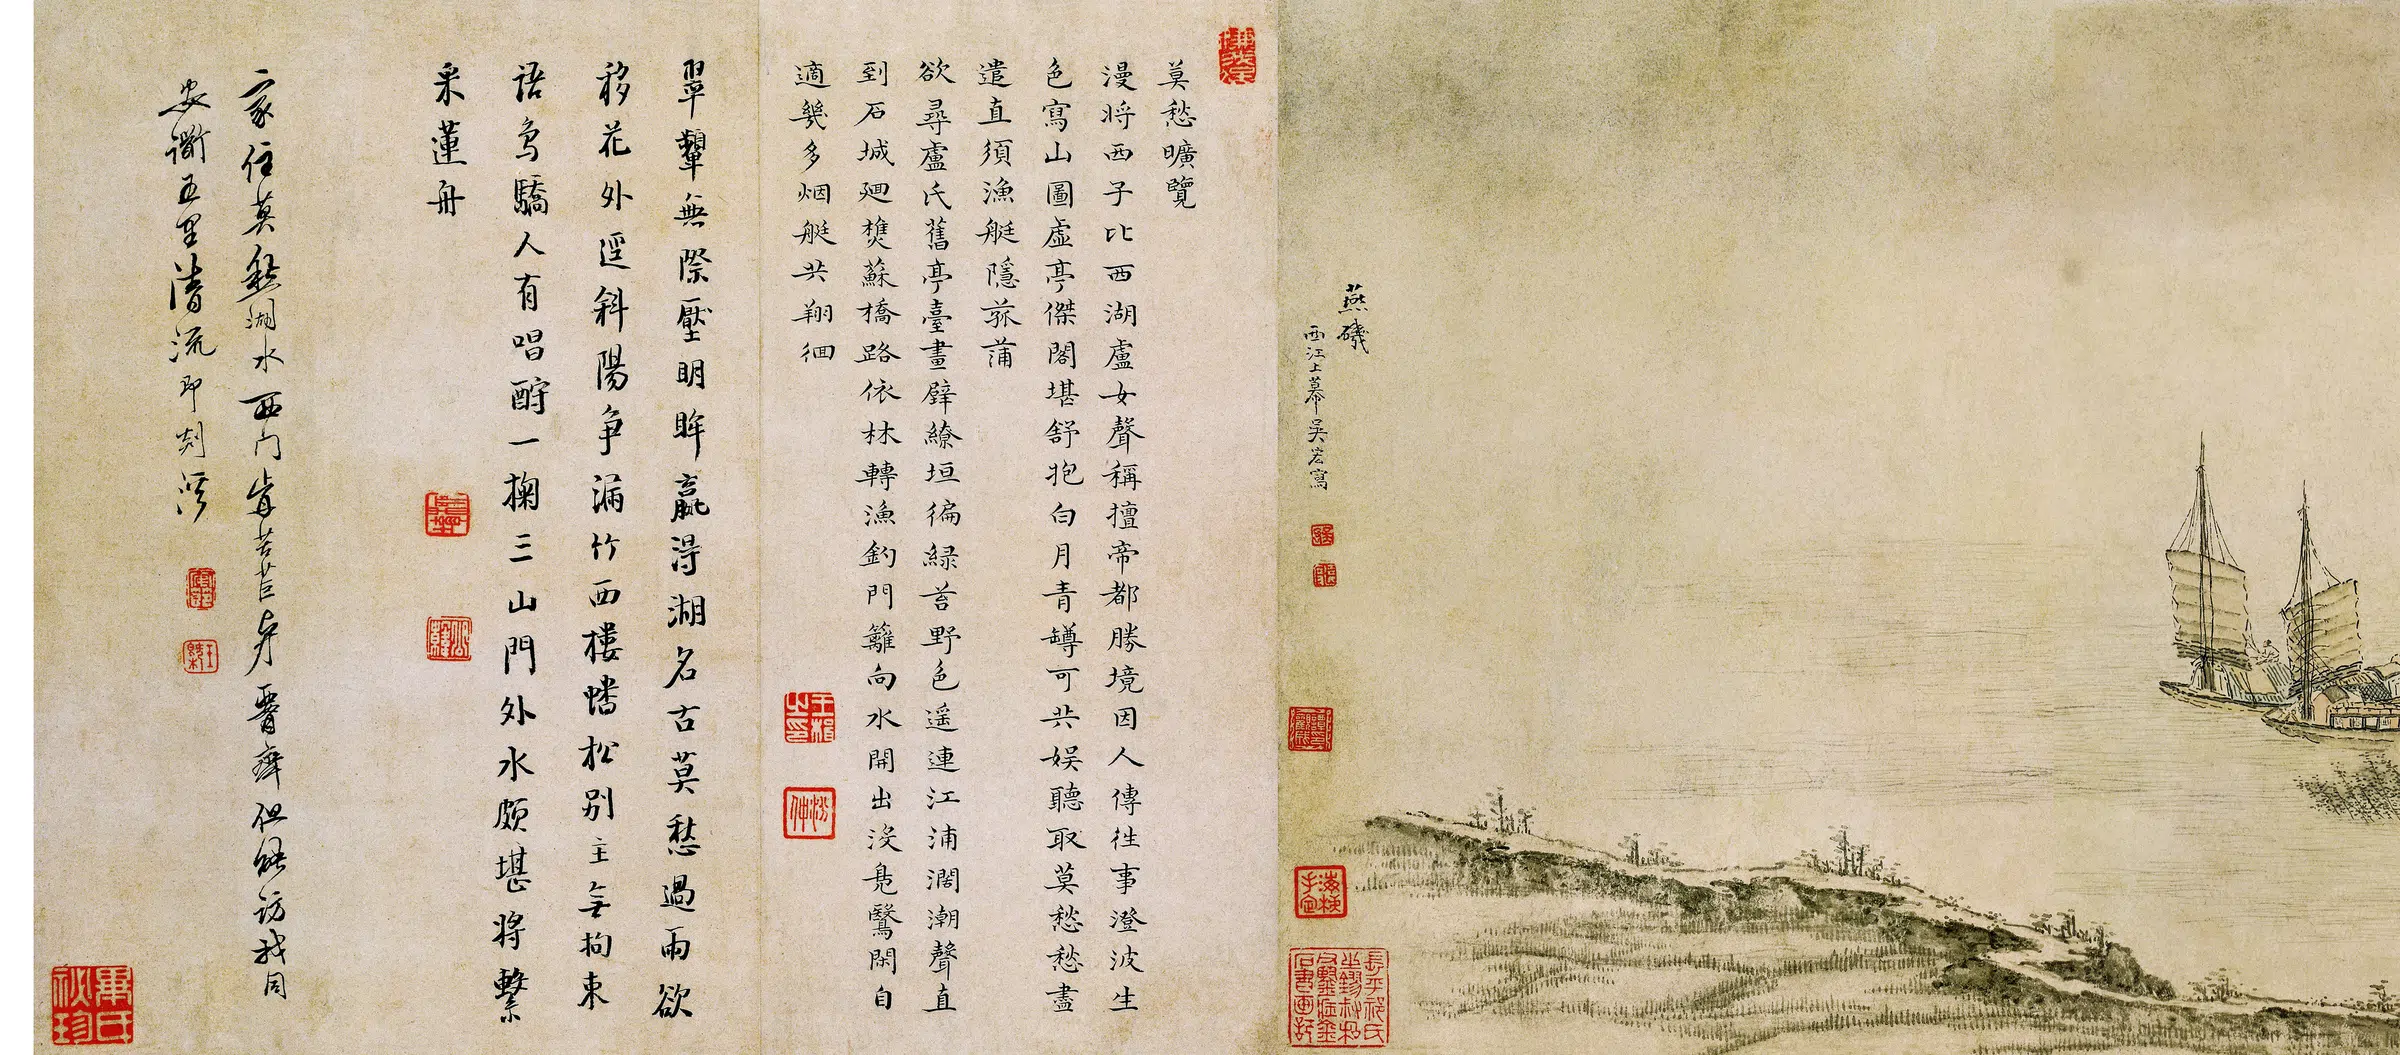 燕磯
西江上暮吳宏寫
莫愁曠覽
漫將西子比西湖盧女聲稱擅帝都勝境因人傳往事澄波生
色寫山圖虛亭傑閣堪舒抱白月青罇可共娱聽取莫愁愁盡
遣直須漁艇隱菰蒲
欲尋盧氏舊亭臺畫壁繚垣徧緑苔野色遥連江浦濶潮聲直
到石城廻樵蘇橋路依林轉漁釣門籬向水開出没鳬鷖閑自
適幾多烟艇共翔徊
翠顰無際壓明眸贏得湖名古莫愁過雨欲
移花外逕斜陽争漏竹西樓幡松别主無拘束
語鳥驕人有唱酧一掬三山門外水頗堪將繫
采蓮舟
家住莫愁湖水西門岸苦苣 齊但能訪我同
安衢五里清流即剡溪
王楫之印
汾仲
畢氏秘珍